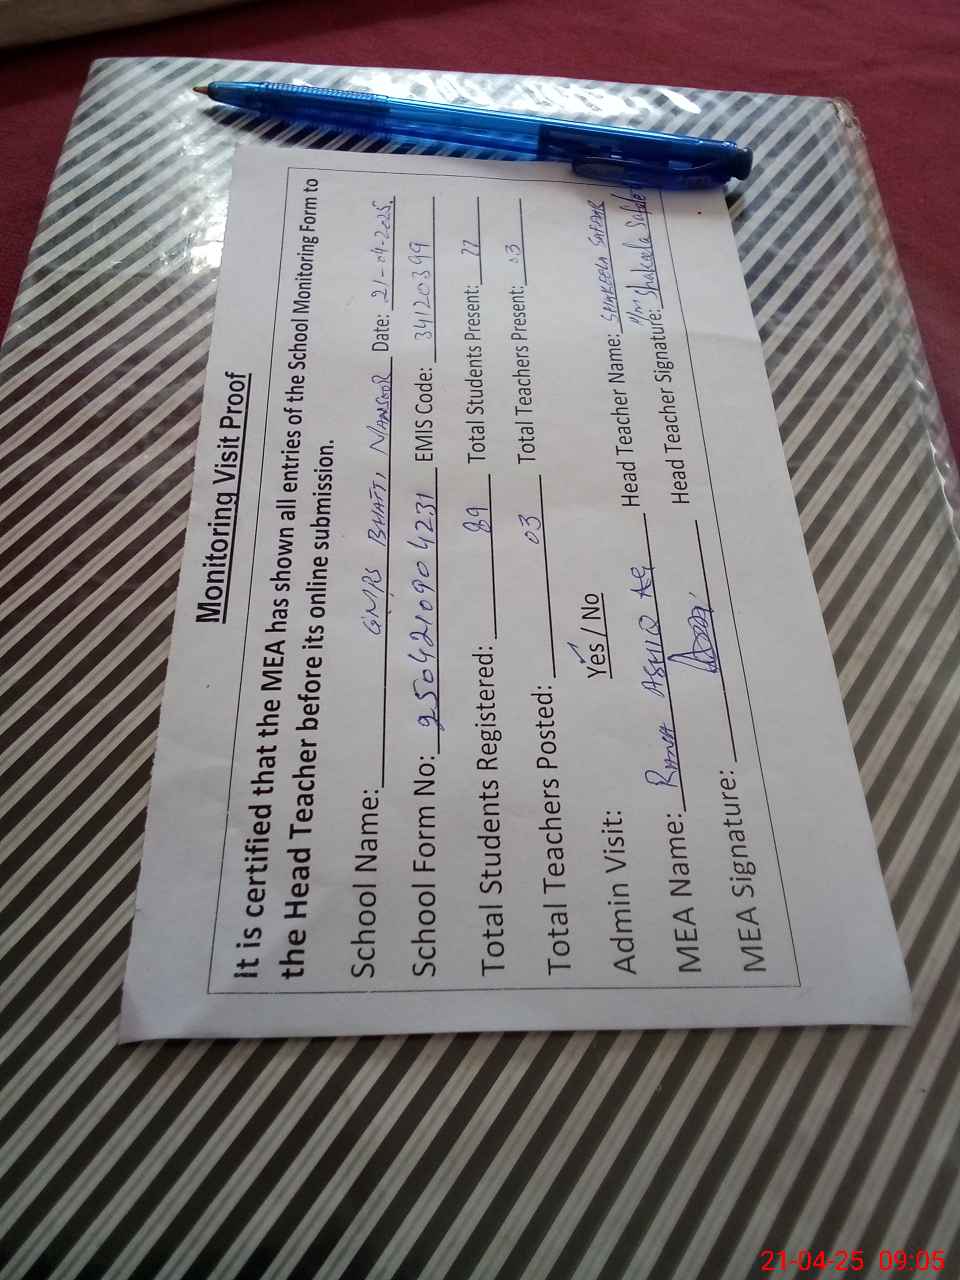 Monitoring Visit Proof
It is certified that the MEA has shown all entries of the School Monitoring Form to
the Head Teacher before its online submission.
School Name: GMPS BHATTI MANSOOR Date: 21-04-2025
School Form No: 2504210904231 EMIS Code: 34120399
Total Students Registered: 89 Total Students Present: 77
Total Teachers Posted: 03 Total Teachers Present: 03
Admin Visit: Yes / No Head Teacher Name: SHAKEELA SAFDAR
MEA Name: RANA ASHIQ Head Teacher Signature: Shakeela Safdar
MEA Signature:
21-04-25 09:05